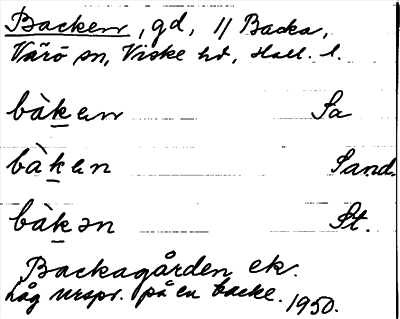 Backen, gd, // Backa,
Värö sn, Viske hd, Hall. l.
bàken Sa
bàken Sand.
bàkən St.
Backagården ek.
Låg urspr. på en backe. 1950.